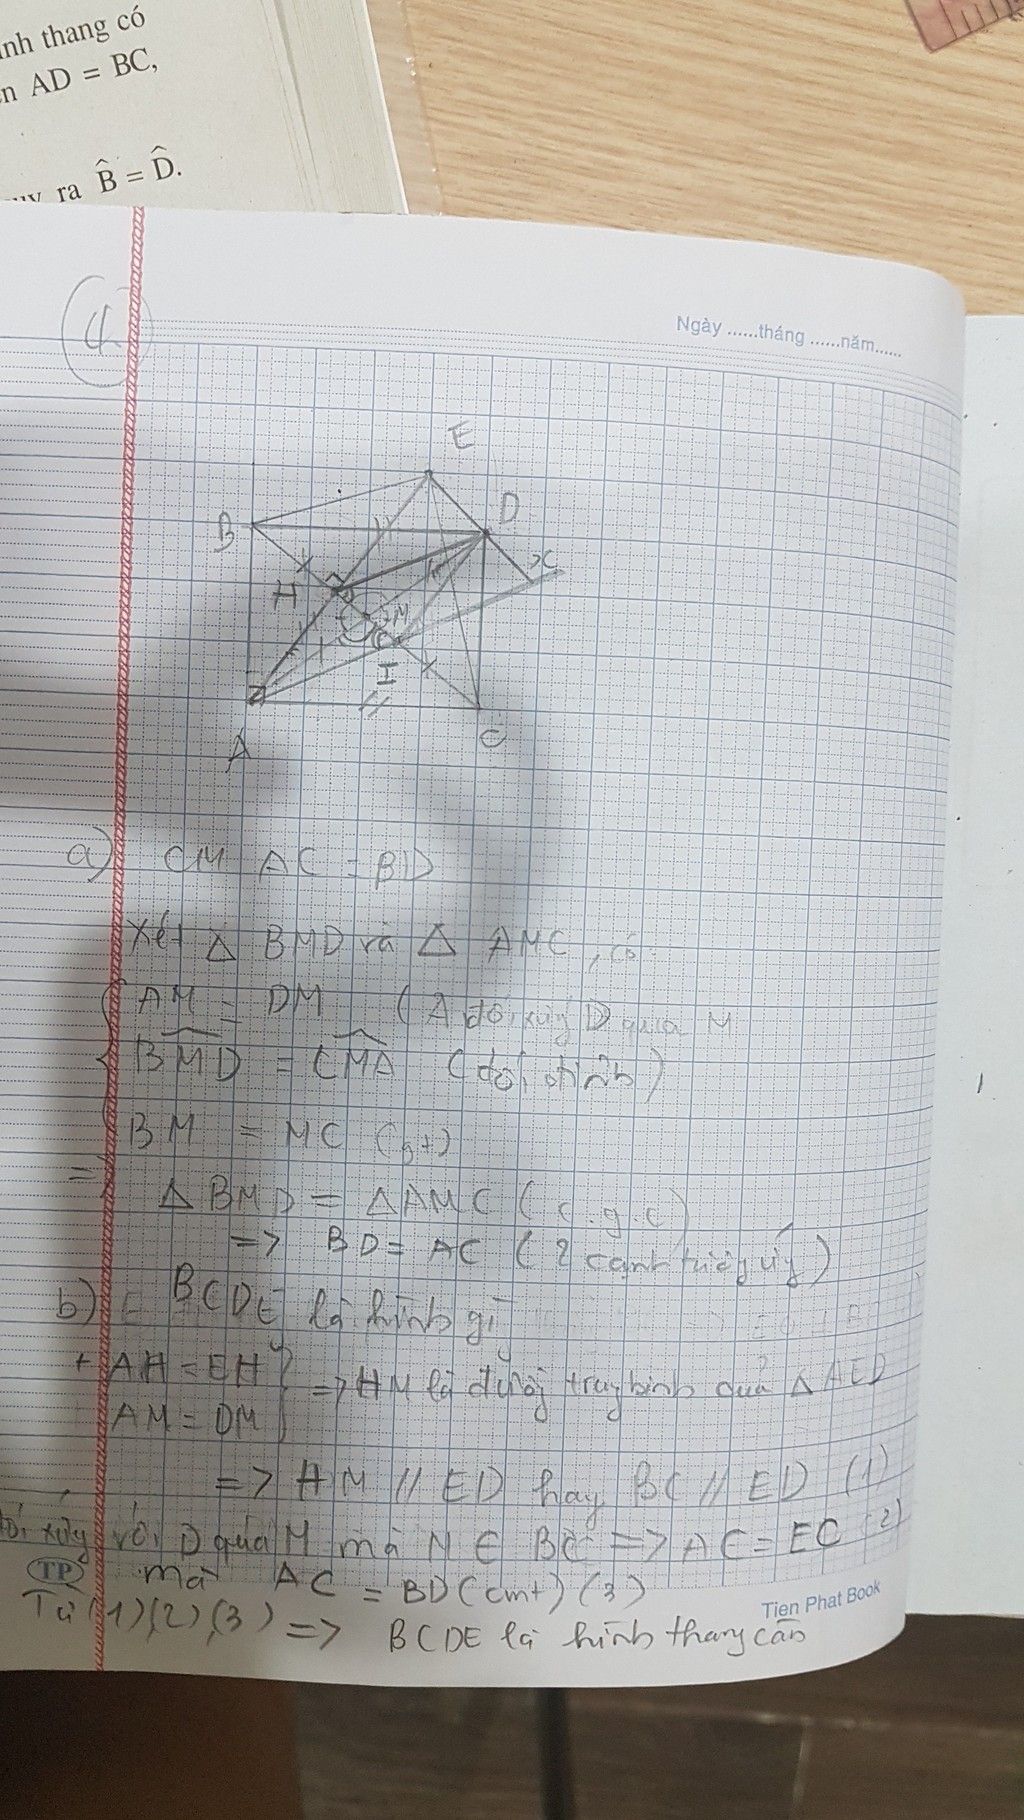 nh thang có
n AD = BC,
ra B̂ = D̂.
Ngày ......tháng ......năm......
E
B
D
x
H
M
I
A
C
a) CM AC = BD
Xét △ BMD và △ AMC, có
AM = DM (A đối xứng D qua M
BMD = CMA (đối đỉnh)
BM = MC (gt)
=> △ BMD = △ AMC (c.g.c)
=> BD = AC (2 cạnh tương ứng)
b) BCDE là hình gì
+ AH = EH
AM = DM
=> HM là đường trung bình của △ AED
=> HM // ED hay BC // ED (1)
đối xứng với D qua M mà M ∈ BC => AC = EC (2)
mà AC = BD (cmt) (3)
TP
Tien Phat Book
Từ (1),(2),(3) => BCDE là hình thang cân